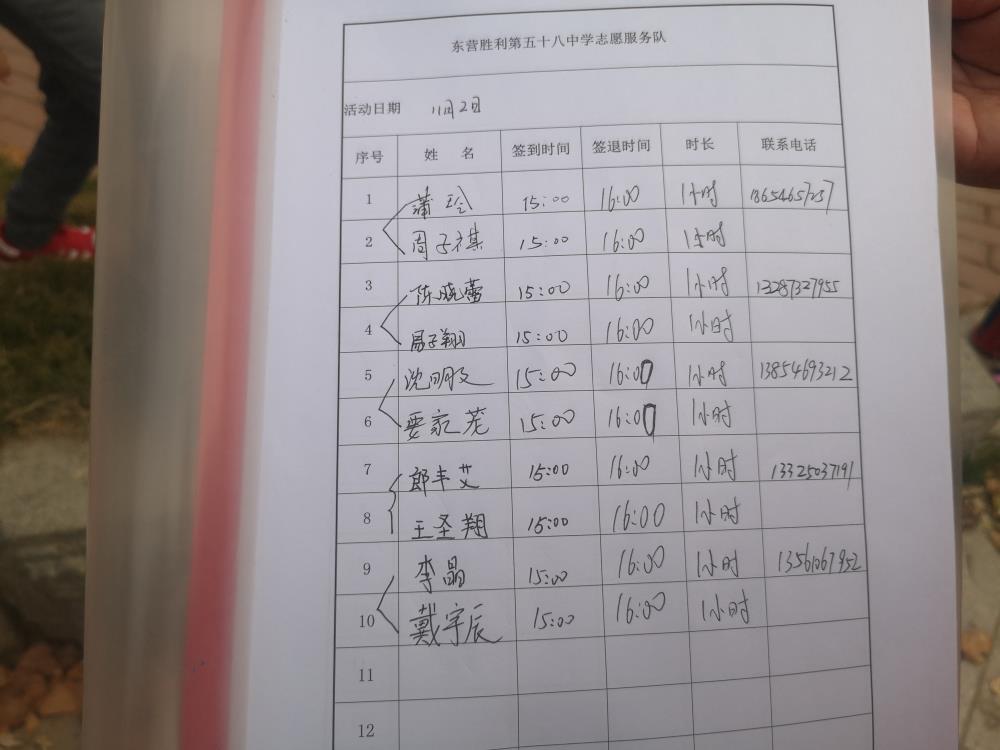 东营胜利第五十八中学志愿服务队
活动日期 11月2日
序号 姓 名 签到时间 签退时间 时长 联系电话
1 蒲玲 15:00 16:00 1小时
2 周子祺 15:00 16:00 1小时
3 陈晓蕾 15:00 16:00 1小时 13287327955
4 子翔 15:00 16:00 1小时
5 沈明 15:00 16:00 1小时 13854693212
6 家茏 15:00 16:00 1小时
7 郎丰艾 15:00 16:00 1小时 13325037191
8 王圣翔 15:00 16:00 1小时
9 李晶 15:00 16:00 1小时 13561067952
10 戴宇辰 15:00 16:00 1小时
11
12